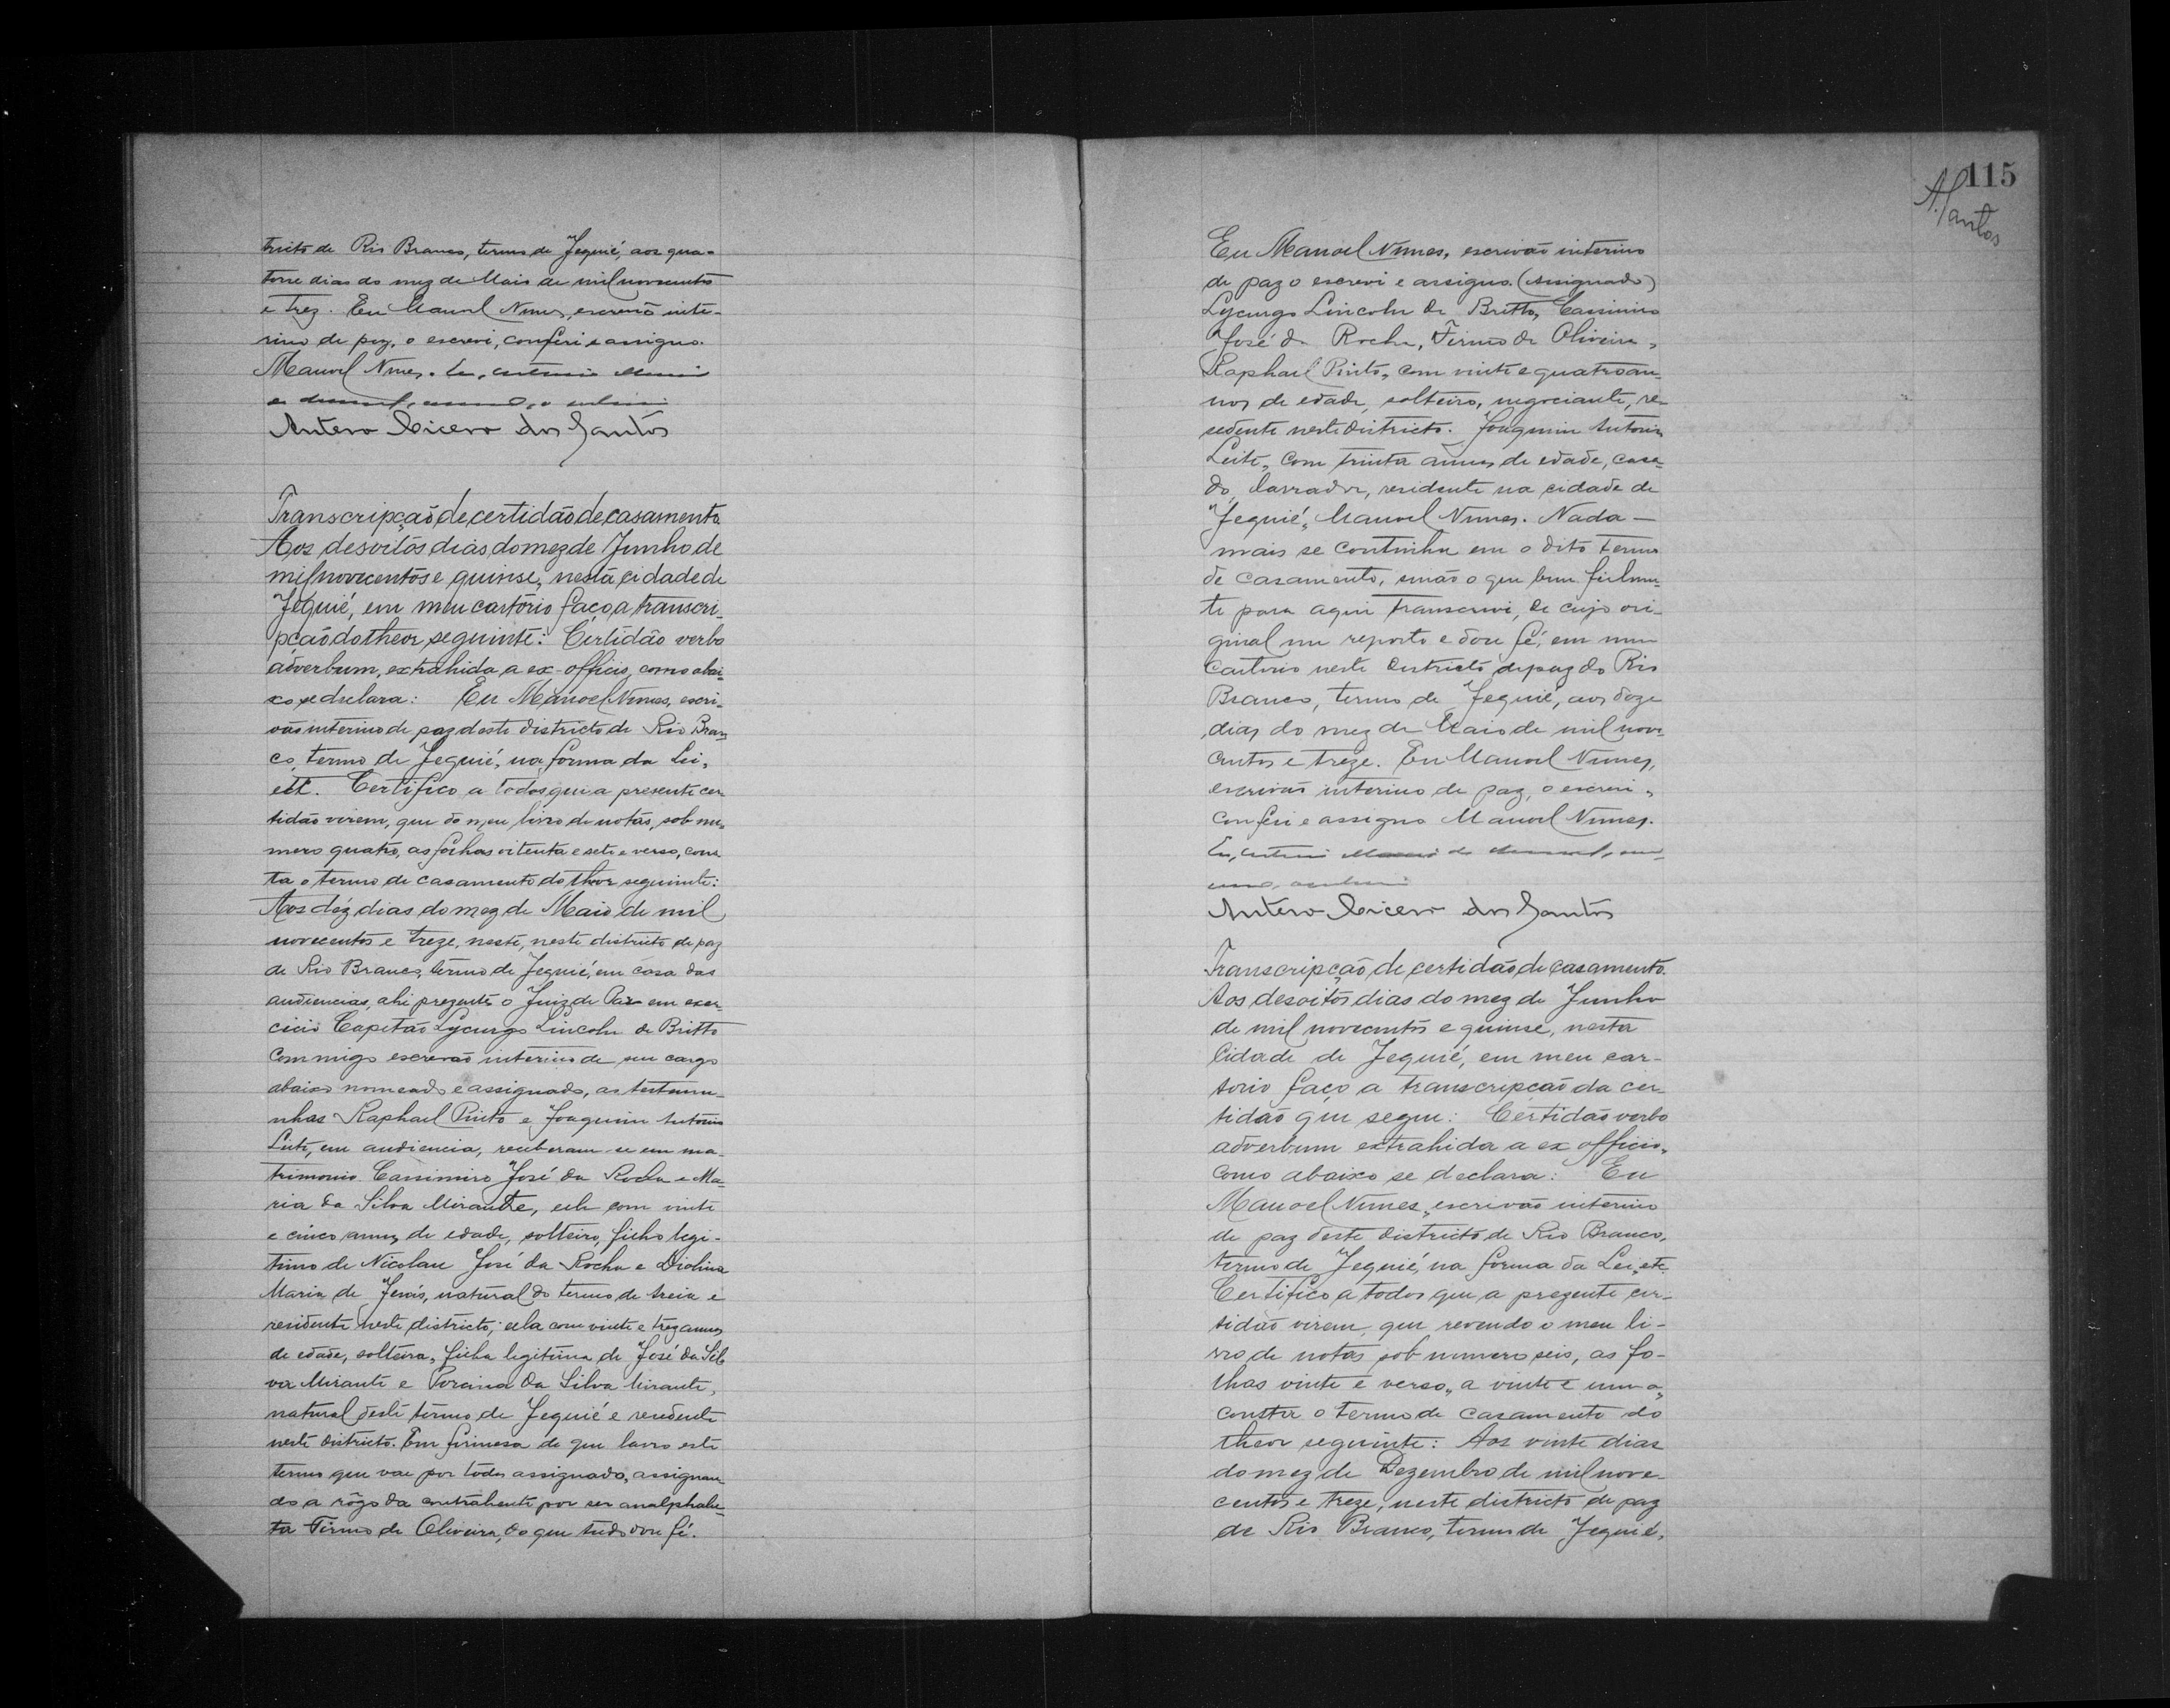 tricto de Rio Branco, termo de Jequié, aos qua-
torse dias do mez de Maio de mil novecentos
e trez. Eu Manoel Nunes, escrivão inte-
rino de paz, o escrevi, conferi e assigno.
Manoel Nunes. Eu, Antonio
Antero Cicero dos Santos
Transcripção de certidão de casamento.
Aos desoitos dias do mez de Junho de
mil novecentos e quinse, nesta cidade de
Jequié, em meu cartorio faço a transcri-
pção do theor seguinte: Certidão verbo
adverbum, extrahida a ex-officio, como abai-
xo se declara: Eu Manoel Nunes, escri-
vão interino de paz deste districto de Rio Bran-
co, termo de Jequié, na forma da Lei,
ett. Certifico a todos que a presente cer-
tidão virem, que do meu livro de notas, sob nu-
mero quatro, as folhas oitenta e sete e verso, cons-
ta o termo de casamento do theor seguinte:
Aos déz dias do mez de Maio de mil
novecentos e treze, neste, neste districto de paz
de Rio Branco, têrmo de Jequié, em casa das
audiencias, ahi prezente o Juiz de Paz em exer-
cicio Capitão Lycurgo Lincoln de Britto
commigo escrevão interino de seu cargo
abaixo nomeado e assignado, as testemu-
nhas Raphael Pinto e Joaquim Antonio
Leite, em audiencia, receberam-se em ma-
trimonio Cassimiro José da Rocha e Ma-
ria da Silva Mirante, elle com vinte
e cinco annos de edade, solteiro, filho legi-
timo de Nicolau José da Rocha e Diolina
Maria de Jesús, natural do termo de Areia e
residente neste districto; ella com vinte e trez annos
de edade, solteira, filha legitima de José da Sil-
va Mirante e Porcina da Silva Mirante,
natural deste têrmo de Jequié e resedente
neste districto. Em firmesa de que lavro este
termo que vae por todos assignado, assignan-
do a rôgo da contrahente por ser analphabe-
ta Firmo de Oliveira, do que tudo dou fé.
115
A. Santos
Eu Manoel Nunes, escrivão interino
de paz o escrevi e assigno. (Assignado)
Lycurgo Lincoln de Britto, Cassimiro
José da Rocha, Firmo de Oliveira,
Raphael Pinto, com vinte e quatro an-
nos de edade, solteiro, negociante, re-
sedente neste districto. Joaquim Antonio
Leite, com trinta annos de edade, casa-
do, lavrador, residente na cidade de
Jequié, Manoel Nunes. Nada —
mais se continha em o dito termo
de casamento, sinão o que bem fielmen-
te para aqui transcrevi, de cujo ori-
ginal me reporto e dou fé, em meu
cartorio neste destricto de paz do Rio
Branco, termo de Jequié, aos doze
dias do mez de Maio de mil nove-
centos e treze. Eu Manoel Nunes,
escrivão interino de paz, o escrevi,
conferi e assigno Manoel Nunes.
Antero Cicero dos Santos
Transcripção de certidão de casamento.
Aos desoitos dias do mez de Junho
de mil novecentos e quinse, nesta
Cidade de Jequié, em meu car-
torio faço a transcripção da cer-
tidão que segue: Certidão verbo
adverbum extrahida a ex officio,
como abaixo se declara: Eu
Manoel Nunes, escrivão interino
de paz deste districto de Rio Branco,
termo de Jequié, na forma da Lei, etc.
Certifico a todos que a prezente cer-
tidão virem, que revendo o meu li-
vro de notas sob numero seis, as fo-
lhas vinte e verso, a vinte e uma,
consta o termo de casamento do
theor seguinte: Aos vinte dias
do mez de Dezembro de mil nove-
centos e treze, neste districto de paz
de Rio Branco, termo de Jequié,